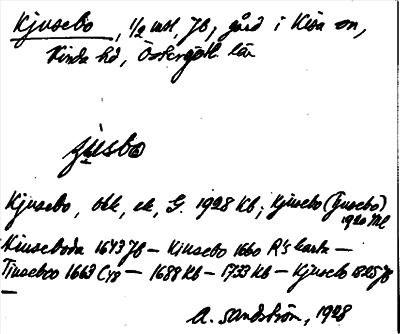 Kjusebo, 1/2 mtl, Jb, gård i Kisa sn,
Kinda hd, Östergötl. län
Kjusebo, obl, ek, G. 1928 Kb; Kjusebo (Tjusebo)
1920 Ml
Kiuseboda 1643 Jb – Kiusebo 1660 R's karta –
Tiuseboo 1663 – 1688 Kb – 1733 Kb – Kjusebo 1825 Jb
–
A. Sandström, 1928